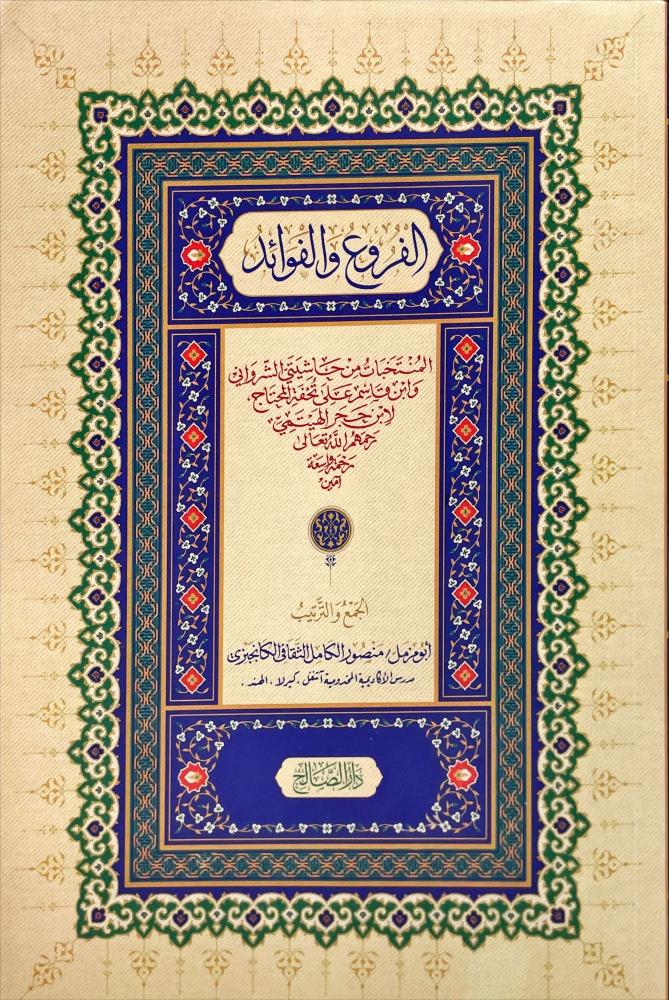 الفروع والفوائد
المنتخبات من حاشيتي الشرواني
وابن قاسم على تحفة المحتاج،
لابن حجر الهيتمي،
رحمهم الله تعالى
رحمة واسعة
آمين
الجمع والترتيب
أبو مزمل/ منصور الكامل الثقافي الكانجيري
مدرس الأكاديمية المخدومية آتنقل، كيرلا، الهند.
دار الصالح